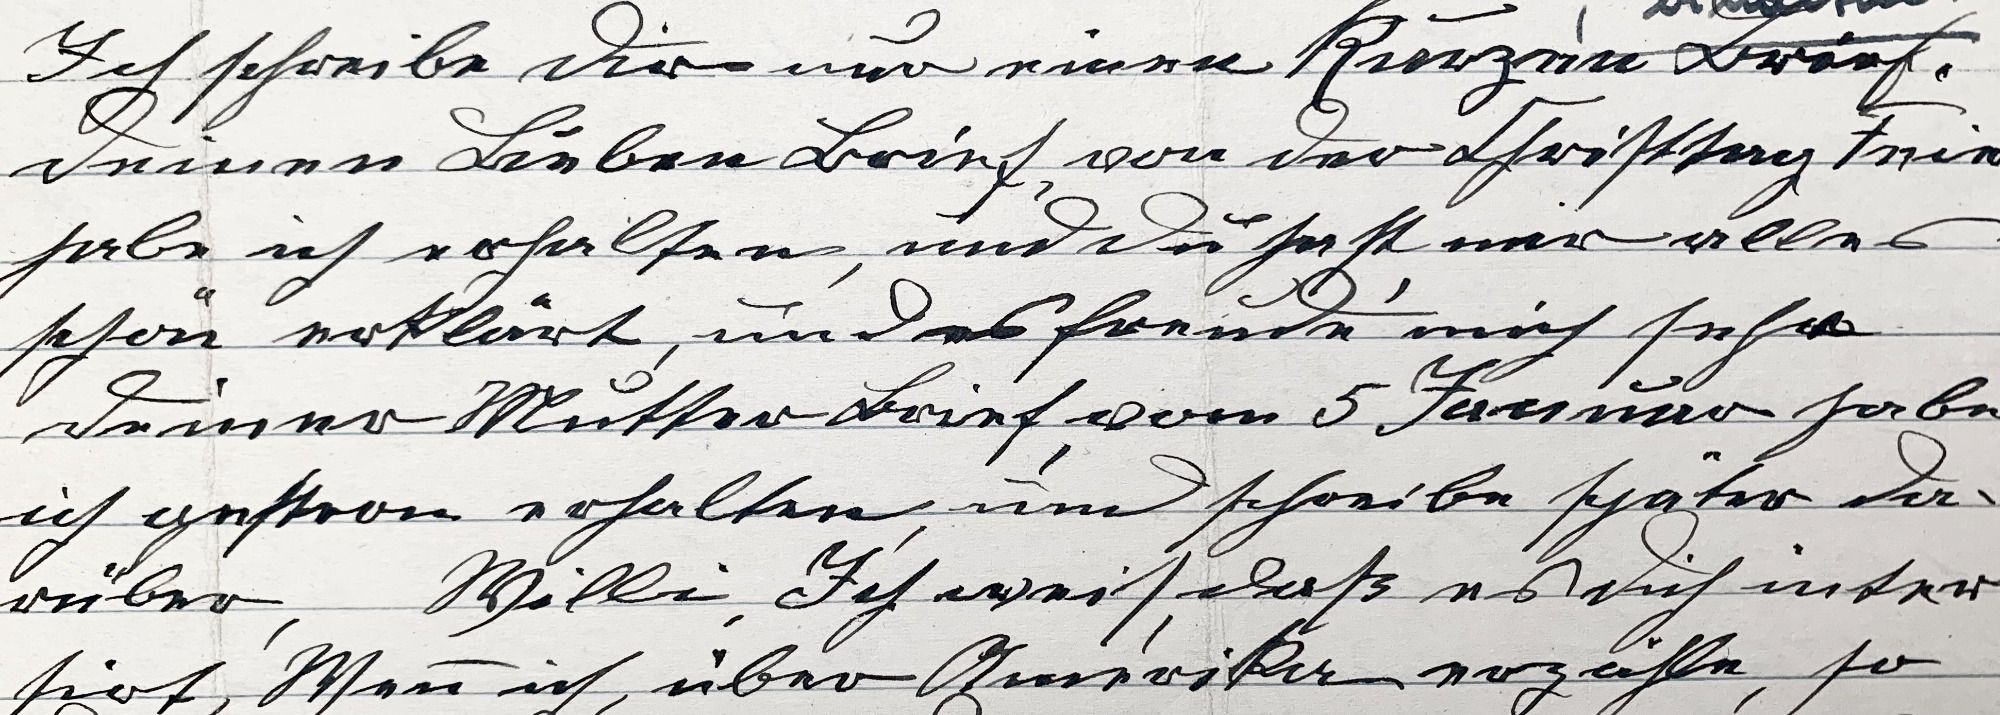 Ich schreibe Dir nur einen Kurzen Brief.
Deinen Lieben Brief, von der Christtag Feier
habe ich erhalten, und Du hast mir alles
schön erklärt, und es freude mich sehr
Deiner Mutter Brief, vom 5 Januar habe
ich gestern erhalten, und schreibe später da-
rüber, Willi, Ich weis, daß es Dich inter
sirt, Wen̄ ich, über Amerika erzähle, so